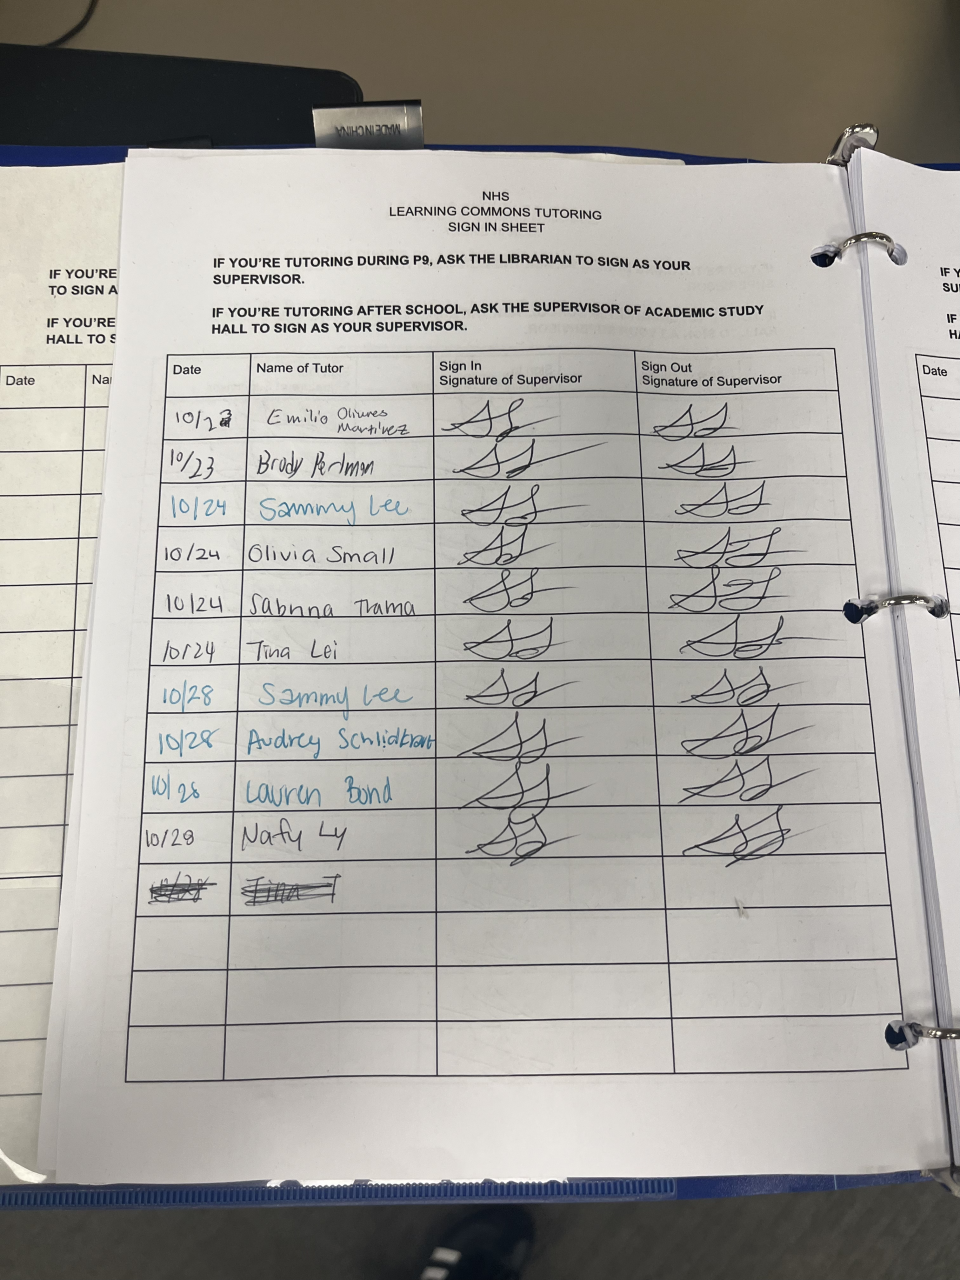 MADE IN CHINA
NHS
LEARNING COMMONS TUTORING
SIGN IN SHEET
IF YOU'RE TUTORING DURING P9, ASK THE LIBRARIAN TO SIGN AS YOUR
SUPERVISOR.
IF YOU'RE TUTORING AFTER SCHOOL, ASK THE SUPERVISOR OF ACADEMIC STUDY
HALL TO SIGN AS YOUR SUPERVISOR.
Date Name of Tutor Sign In Signature of Supervisor Sign Out Signature of Supervisor
10/23 Emilio Olivares Martinez
10/23 Brody Perlman
10/24 Sammy Lee
10/24 Olivia Small
10/24 Sabrina Trama
10/24 Tina Lei
10/28 Sammy Lee
10/28 Audrey
10/28 Lauren Bond
10/28 Nafy Ly
10/28 Tina
IF YOU'RE
TO SIGN A
IF YOU'RE
HALL TO S
Date Na
IF Y
SU
IF
HA
Date